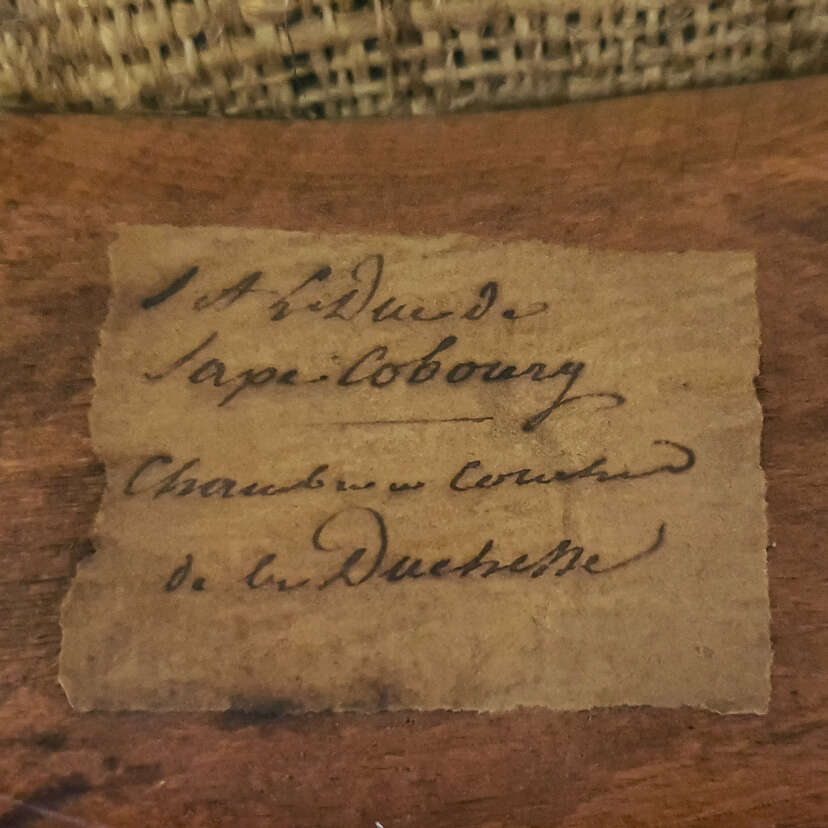 S A Le Duc de
Saxe-Cobourg
Chambre a coucher
de la Duchesse